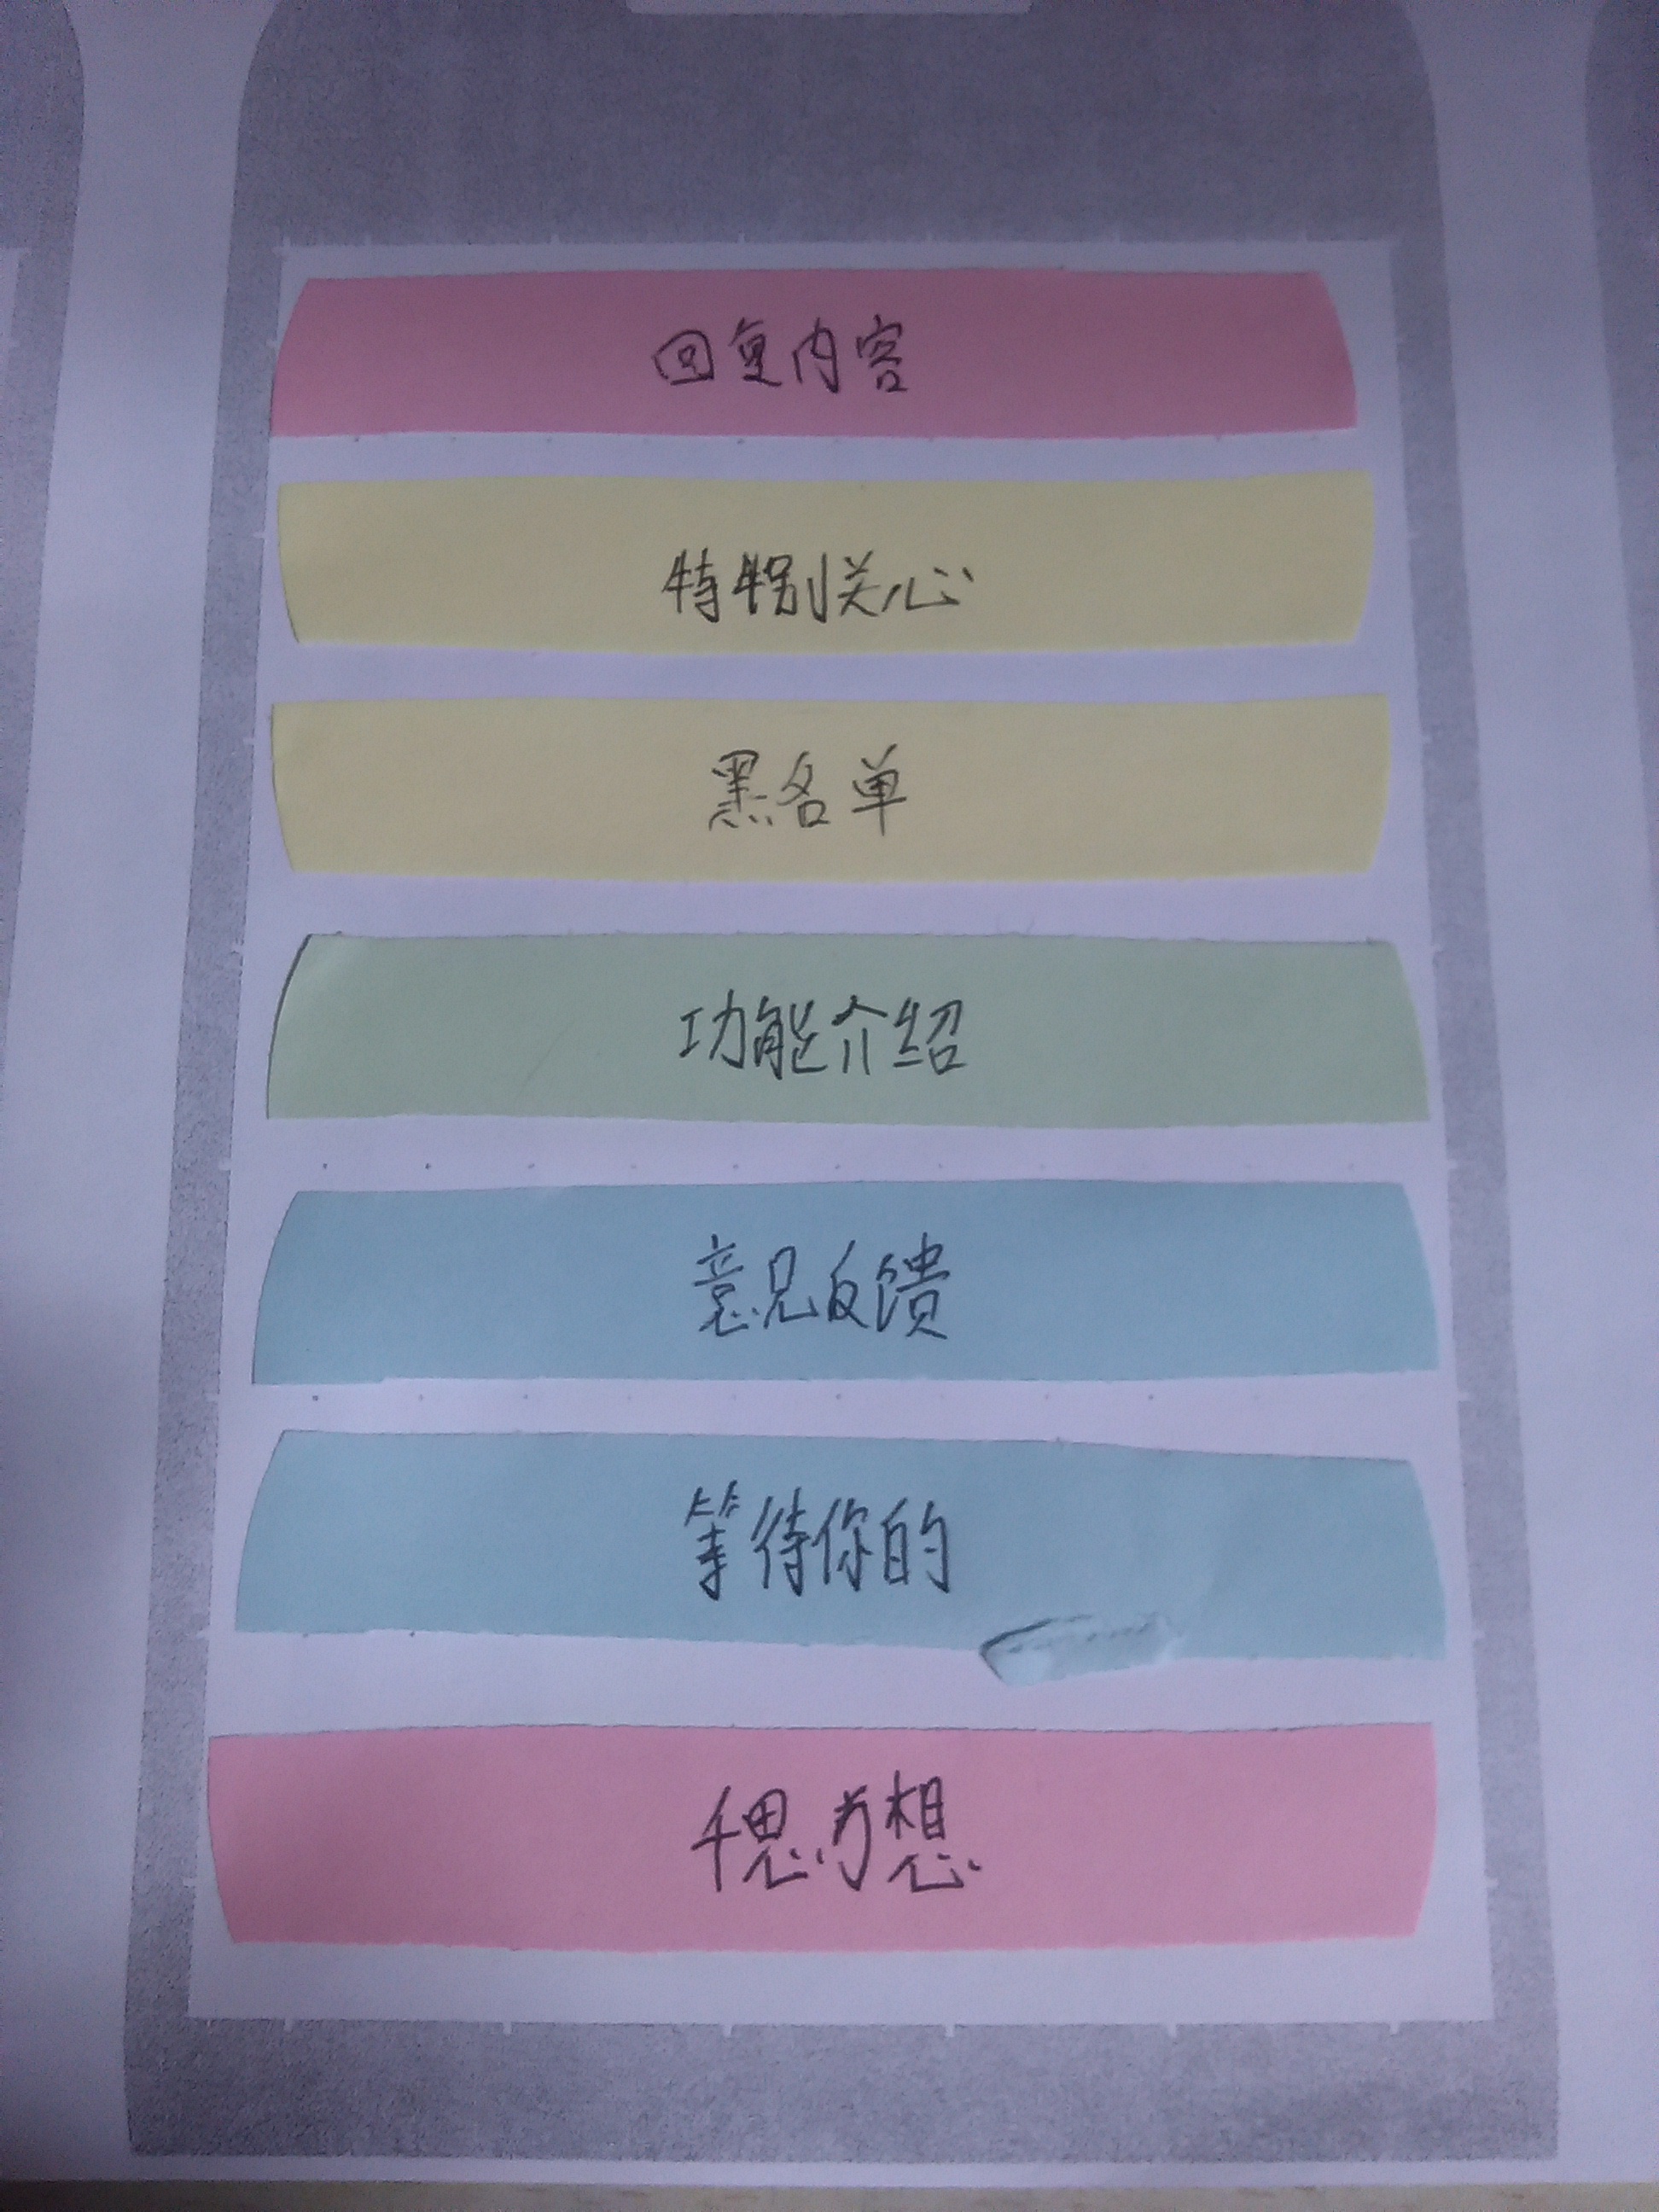 回复内容
特别关心
黑名单
功能介绍
意见反馈
等待你的
千思万想